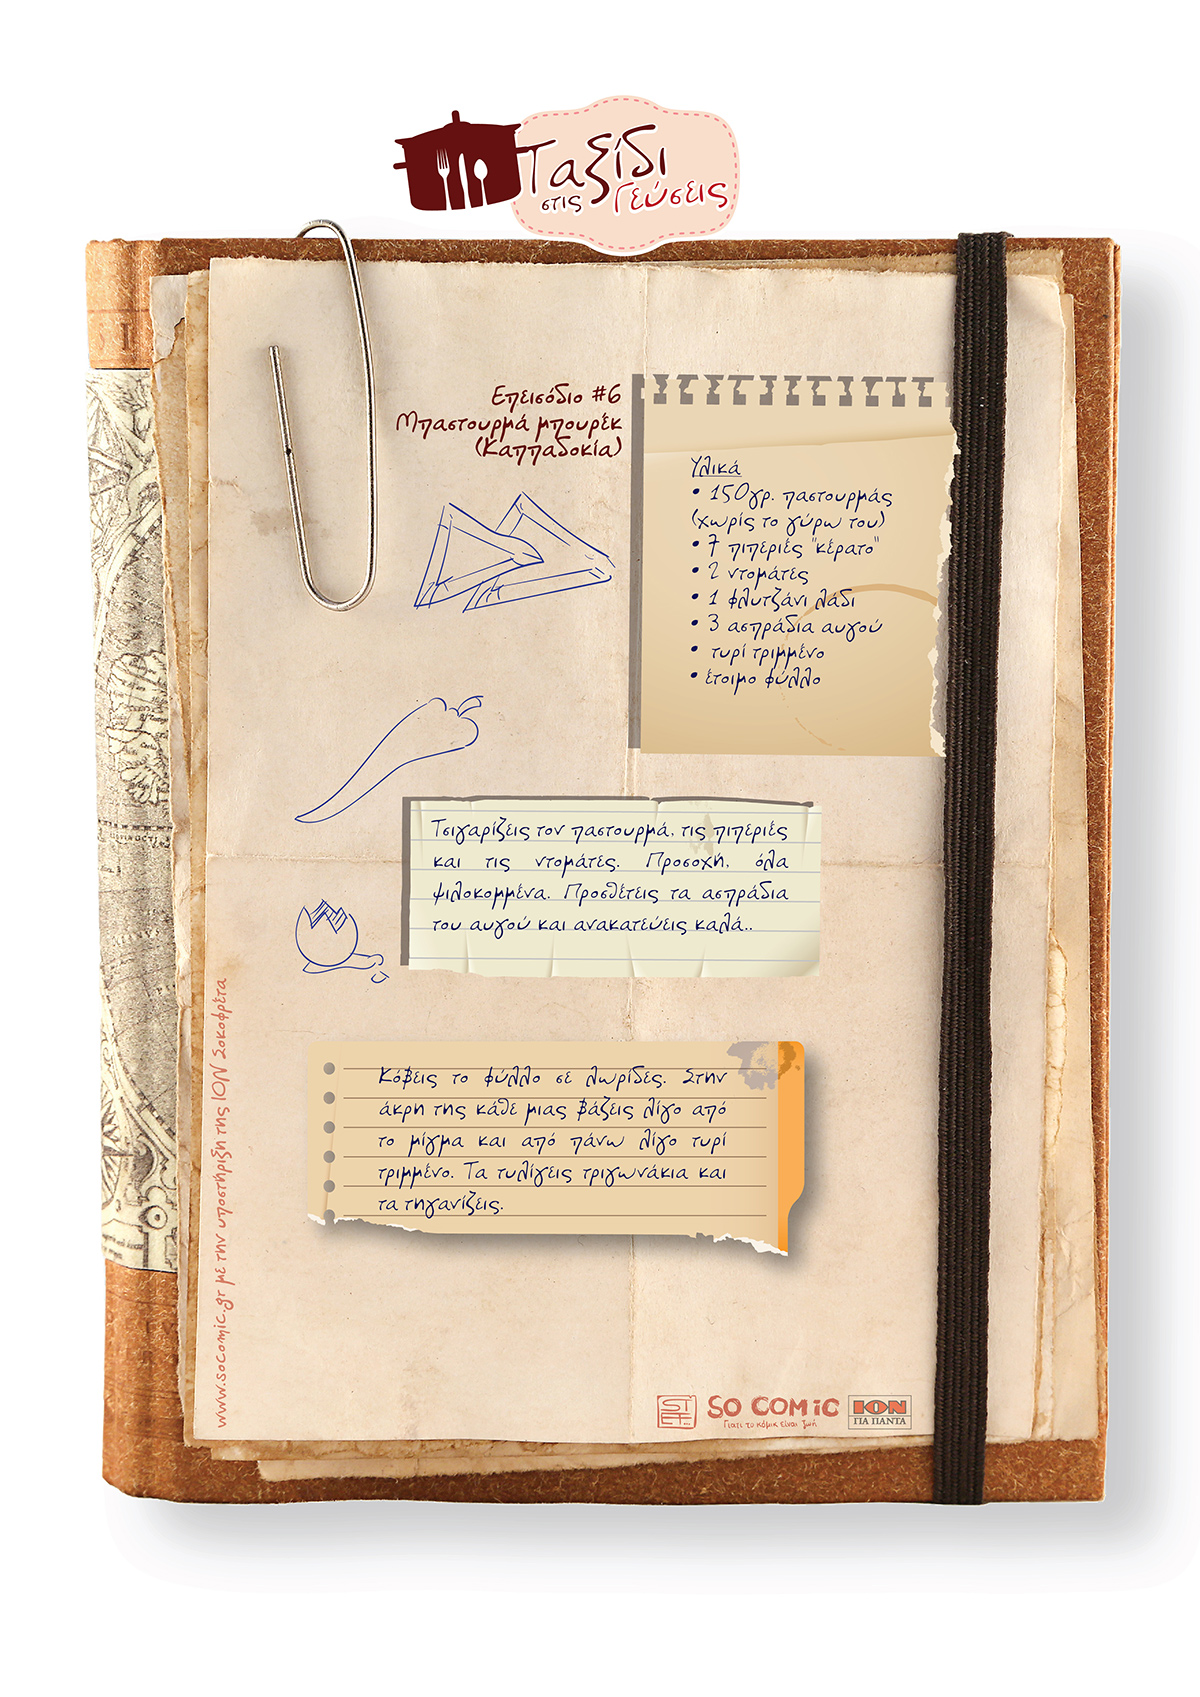 Ταξίδι
στις Γεύσεις
Επεισόδιο #6
Μπαστουρμά μπουρέκ
(Καππαδοκία)
Υλικά
• 150γρ. παστουρμάς
(χωρίς το γύρω του)
• 7 πιπεριές "κέρατο"
• 2 ντομάτες
• 1 φλυτζάνι λάδι
• 3 ασπράδια αυγού
• τυρί τριμμένο
• έτοιμο φύλλο
Τσιγαρίζεις τον παστουρμά, τις πιπεριές
και τις ντομάτες. Προσοχή, όλα
ψιλοκομμένα. Προσθέτεις τα ασπράδια
του αυγού και ανακατεύεις καλά..
Κόβεις το φύλλο σε λωρίδες. Στην
άκρη της κάθε μιας βάζεις λίγο από
το μίγμα και από πάνω λίγο τυρί
τριμμένο. Τα τυλίγεις τριγωνάκια και
τα τηγανίζεις.
www.socomic.gr με την υποστήριξη της ΙΟΝ Σοκοφρέτα
SO COMIC
Γιατί το κόμικ είναι ζωή
ΙΟΝ
ΓΙΑ ΠΑΝΤΑ